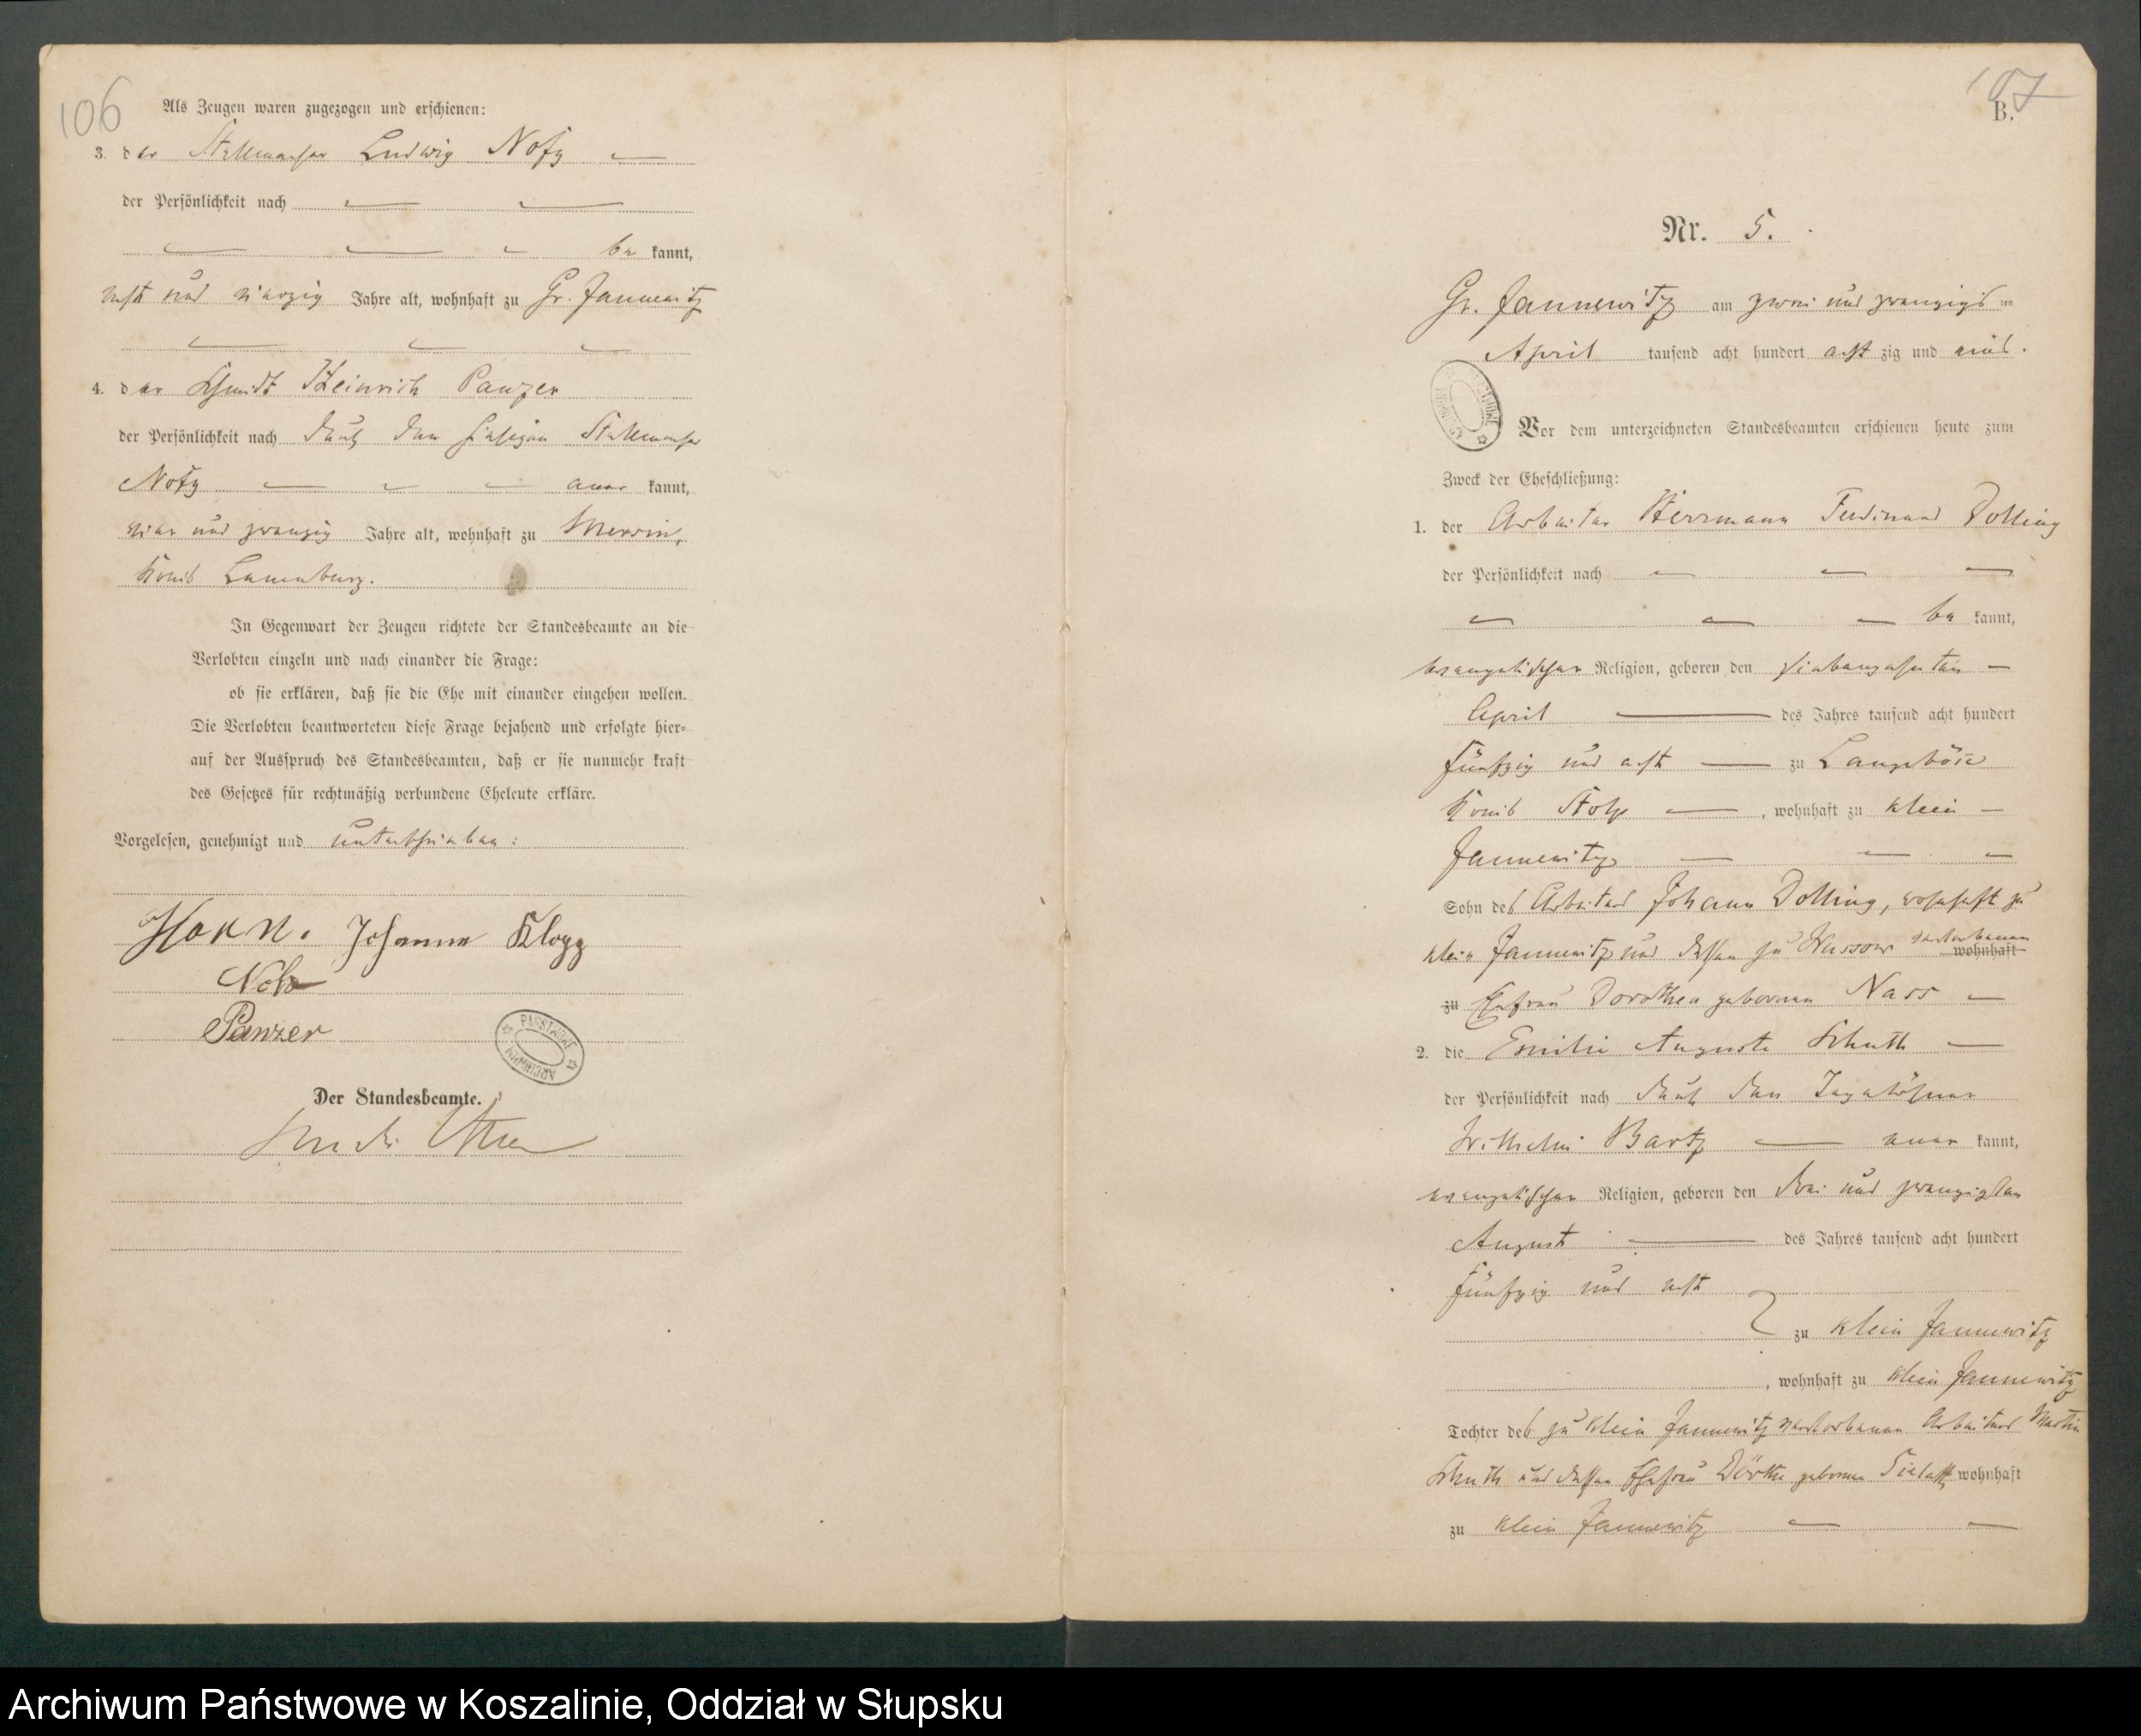 106
Als Zeugen waren zugezogen und erschienen:
3. der Stellmacher Ludwig Notz
der Persönlichkeit nach
be kannt,
acht und vierzig Jahre alt, wohnhaft zu Gr. Jannewitz
4. der Schmidt Heinrich Panzer
der Persönlichkeit nach durch den hiesigen Stellmacher
Notz aner kannt,
vier und zwanzig Jahre alt, wohnhaft zu Mersin,
Kreis Lauenburg.
In Gegenwart der Zeugen richtete der Standesbeamte an die
Verlobten einzeln und nach einander die Frage:
ob sie erklären, daß sie die Ehe mit einander eingehen wollen.
Die Verlobten beantworteten diese Frage bejahend und erfolgte hier-
auf der Ausspruch des Standesbeamten, daß er sie nunmehr kraft
des Gesetzes für rechtmäßig verbundene Eheleute erkläre.
Vorgelesen, genehmigt und unterschrieben:
Horn. Johanna Klogg
Panzer
ARCHIWUM PAŃSTWOWE
Der Standesbeamte.
107
B.
Nr. 5.
Gr. Jannewitz am zwei und zwanzigs ten
April tausend acht hundert acht zig und eins.
Vor dem unterzeichneten Standesbeamten erschienen heute zum
Zweck der Eheschließung:
1. der Arbeiter Herrmann Ferdinand Dolling
der Persönlichkeit nach
be kannt,
evangelischer Religion, geboren den siebenzehnten
April des Jahres tausend acht hundert
fünfzig und acht zu Langeböse
Kreis Stolp, wohnhaft zu Klein
Jannewitz
Sohn des Arbeiters Johann Dolling, wohnhaft zu
Klein Jannewitz und dessen zu Wussow verstorbenen wohnhaft
zu Ehefrau Dorothea geborenen Nass
2. die Emilie Auguste Schuth
der Persönlichkeit nach durch den Tagelöhner
Wilhelm Bartz aner kannt,
evangelischer Religion, geboren den drei und zwanzigsten
August des Jahres tausend acht hundert
fünfzig und acht
zu Klein Jannewitz
, wohnhaft zu Klein Jannewitz
Tochter des zu Klein Jannewitz verstorbenen Arbeiters Martin
Schuth und dessen Ehefrau Dörthe geborenen wohnhaft
zu Klein Jannewitz
Archiwum Państwowe w Koszalinie, Oddział w Słupsku